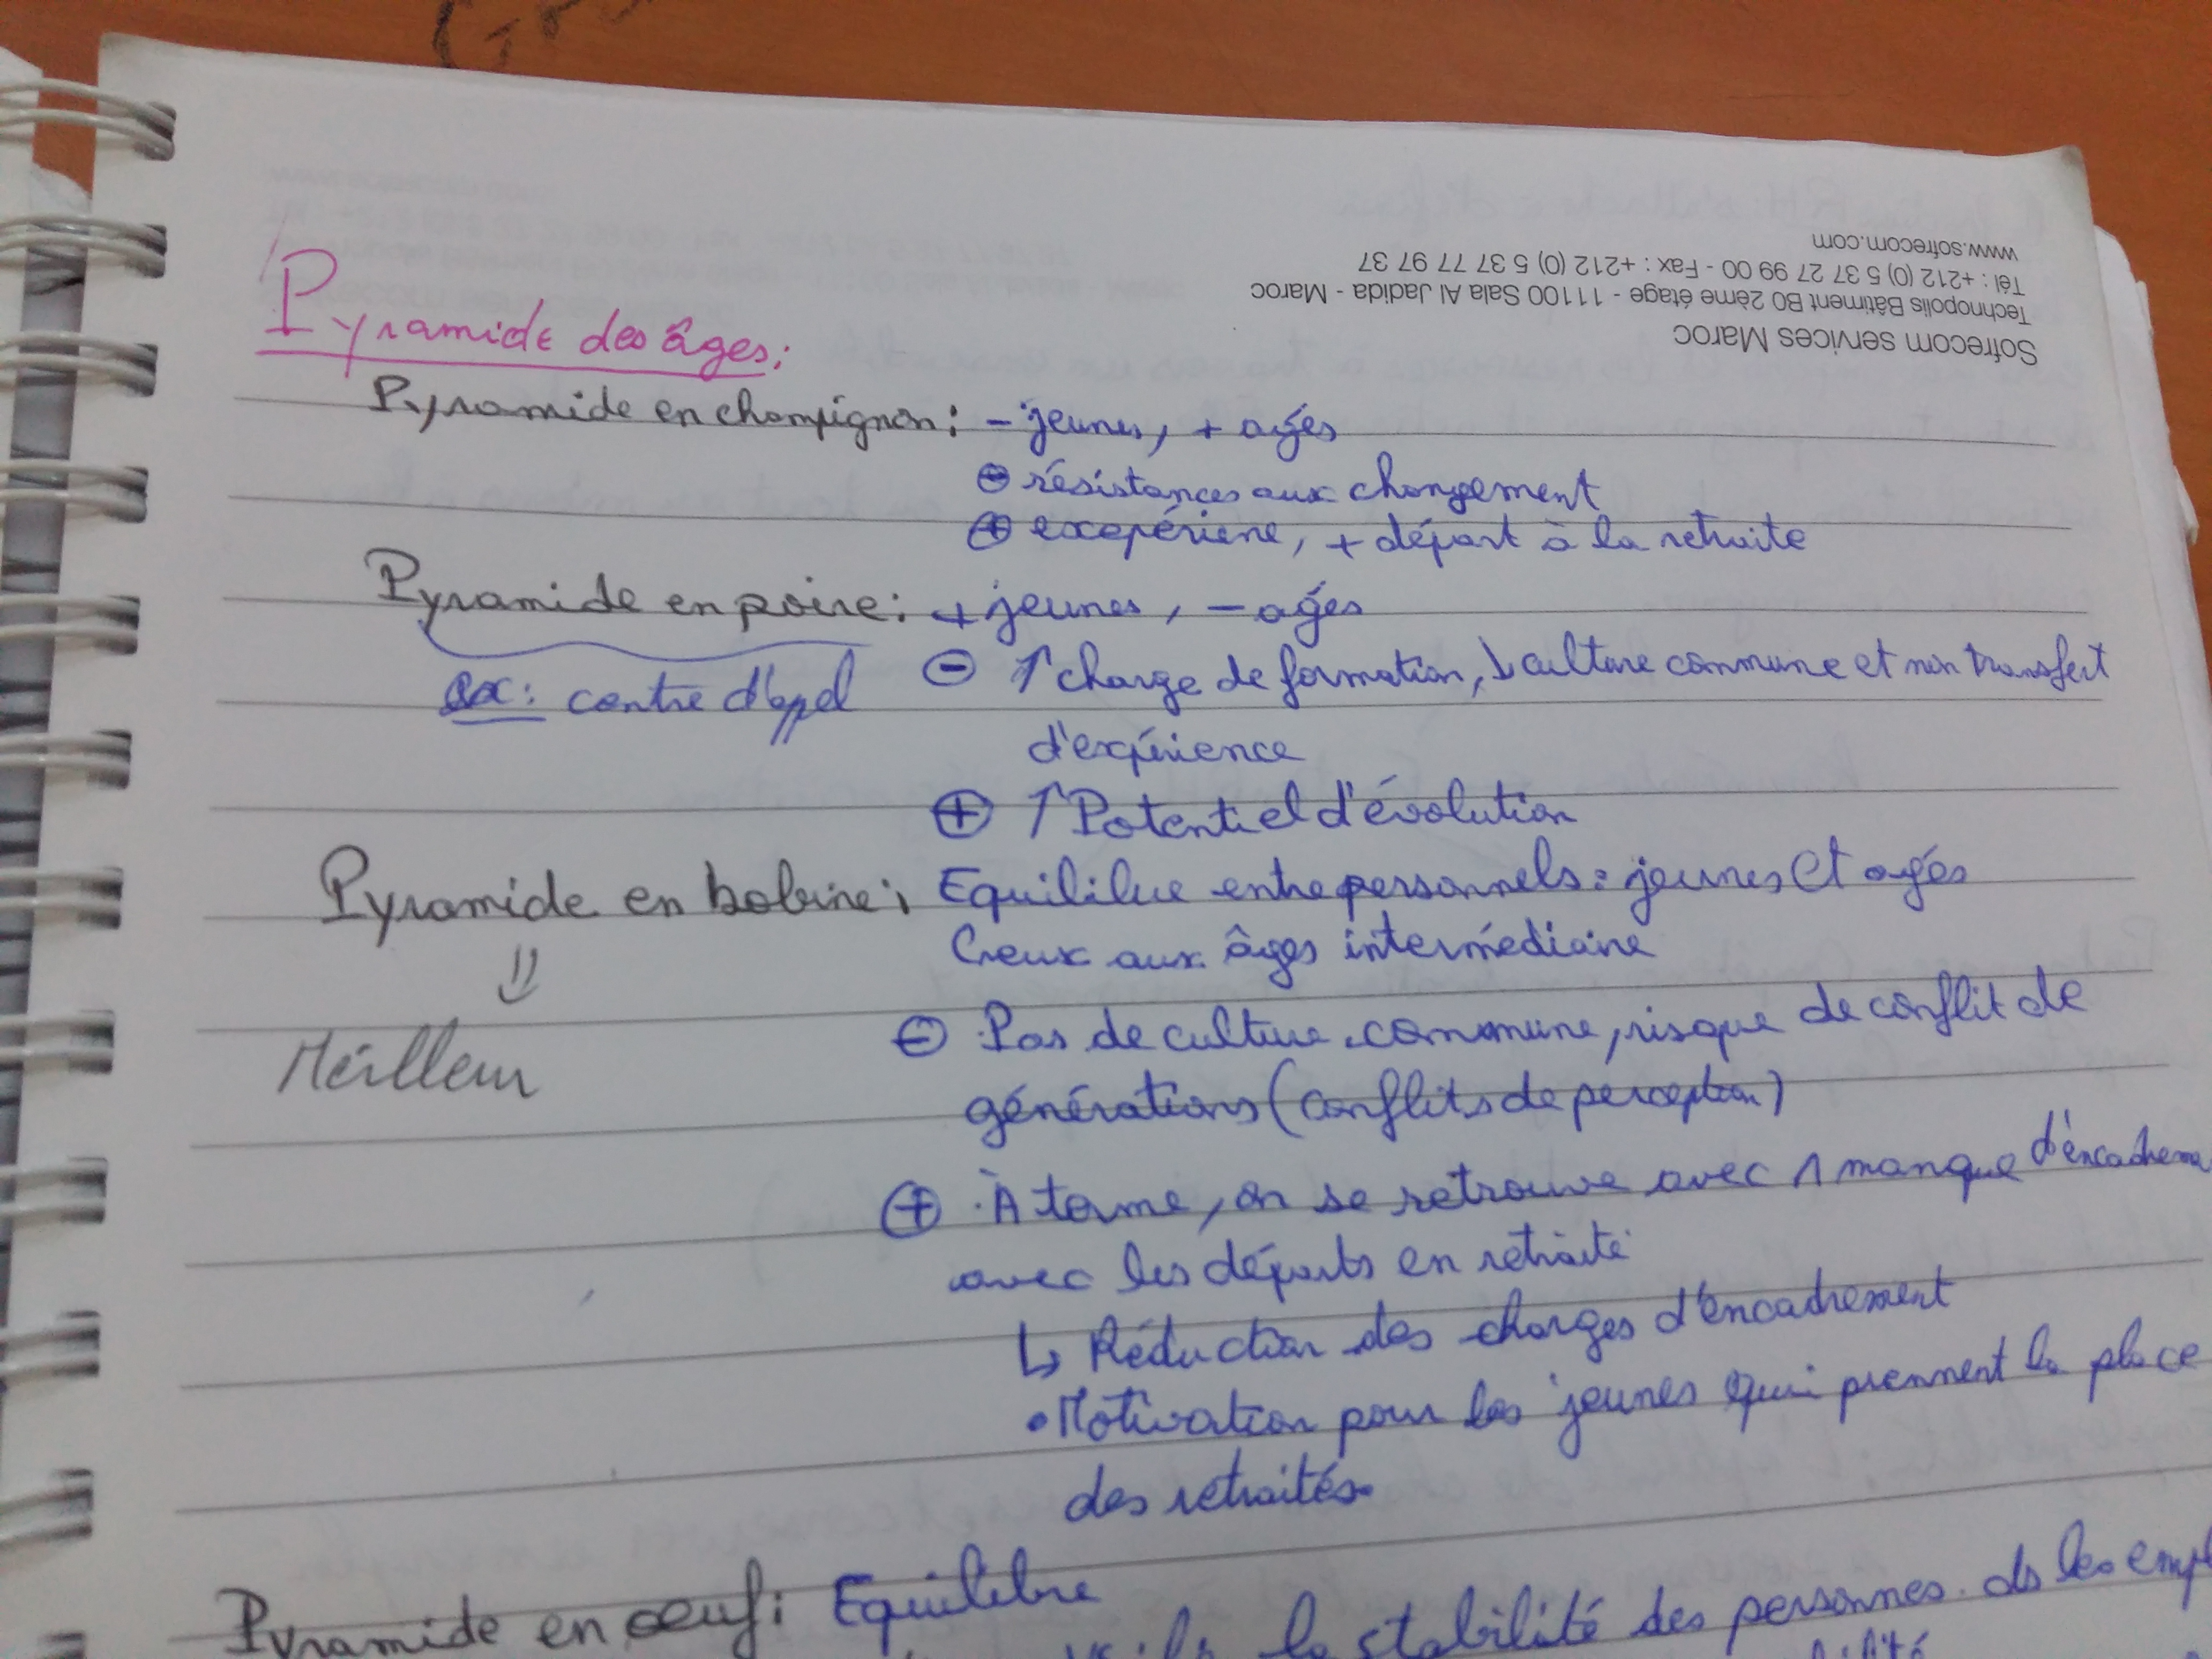 Pyramide des âges:
Pyramide en champignon: - jeunes, + agés
⊖ résistances aux changement
⊕ experiene, + départ à la retraite
Pyramide en poire: + jeunes, - agés
ex: contre d'apel ⊖ ↑ charge de formation, ↓ culture commune et non transfert
d'expérience
⊕ ↑ Potentiel d'évolution
Pyramide en bobine: Equilibre entre personnels: jeunes et agés
Creux aux âges intermédiaire
Meilleur
⊖ . Pas de culture commune, risque de conflit de
générations (conflits de perception)
⊕ . À terme, on se retrouve avec 1 manque d'encadrem
avec les départs en retraite
↳ Réduction des charges d'encadrement
• Motivation pour les jeunes qui prennent la place
des retraités.
Pyramide en œuf: Equilibre
la stabilité des personnes. ds les empl
Sofrecom services Maroc
Technopolis Bâtiment B0 2ème étage - 11100 Sala Al Jadida - Maroc
Tél : +212 (0) 5 37 27 99 00 - Fax : +212 (0) 5 37 77 97 37
www.sofrecom.com